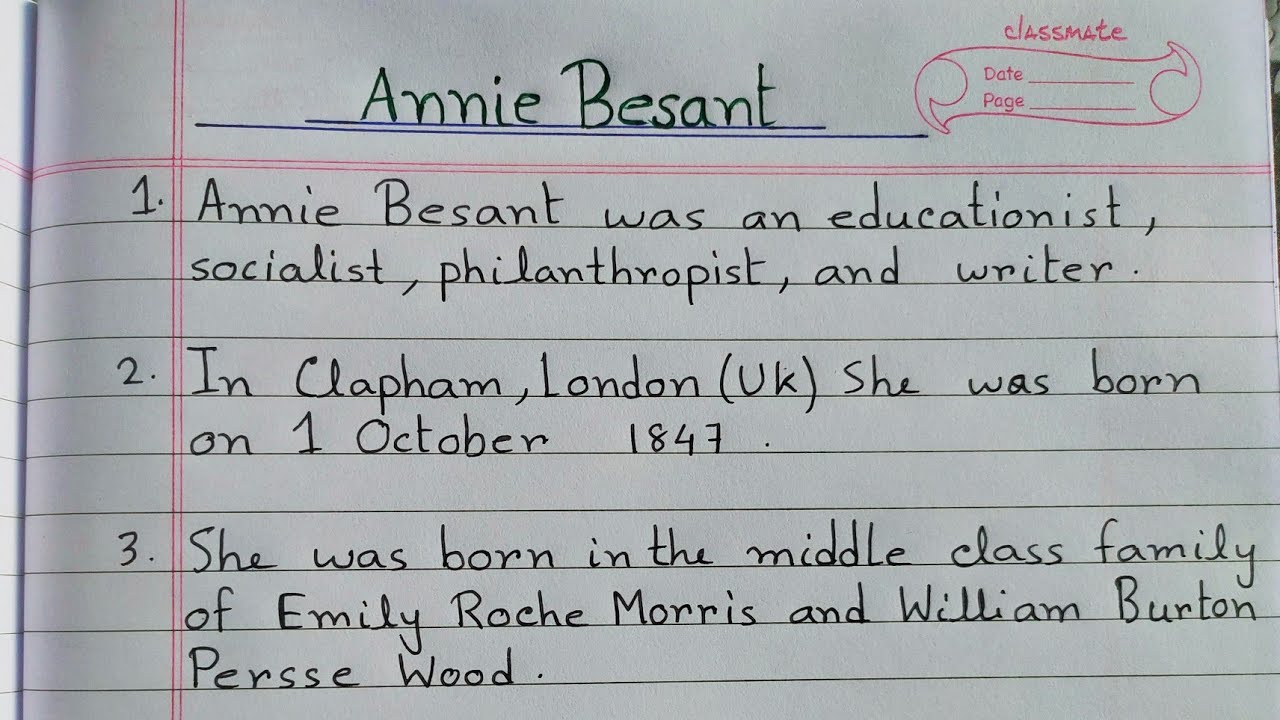 classmate
Date
Page
Annie Besant
1. Annie Besant was an educationist,
socialist, philanthropist, and writer.
2. In Clapham, London (UK) She was born
on 1 October 1847.
3. She was born in the middle class family
of Emily Roche Morris and William Burton
Persse Wood.